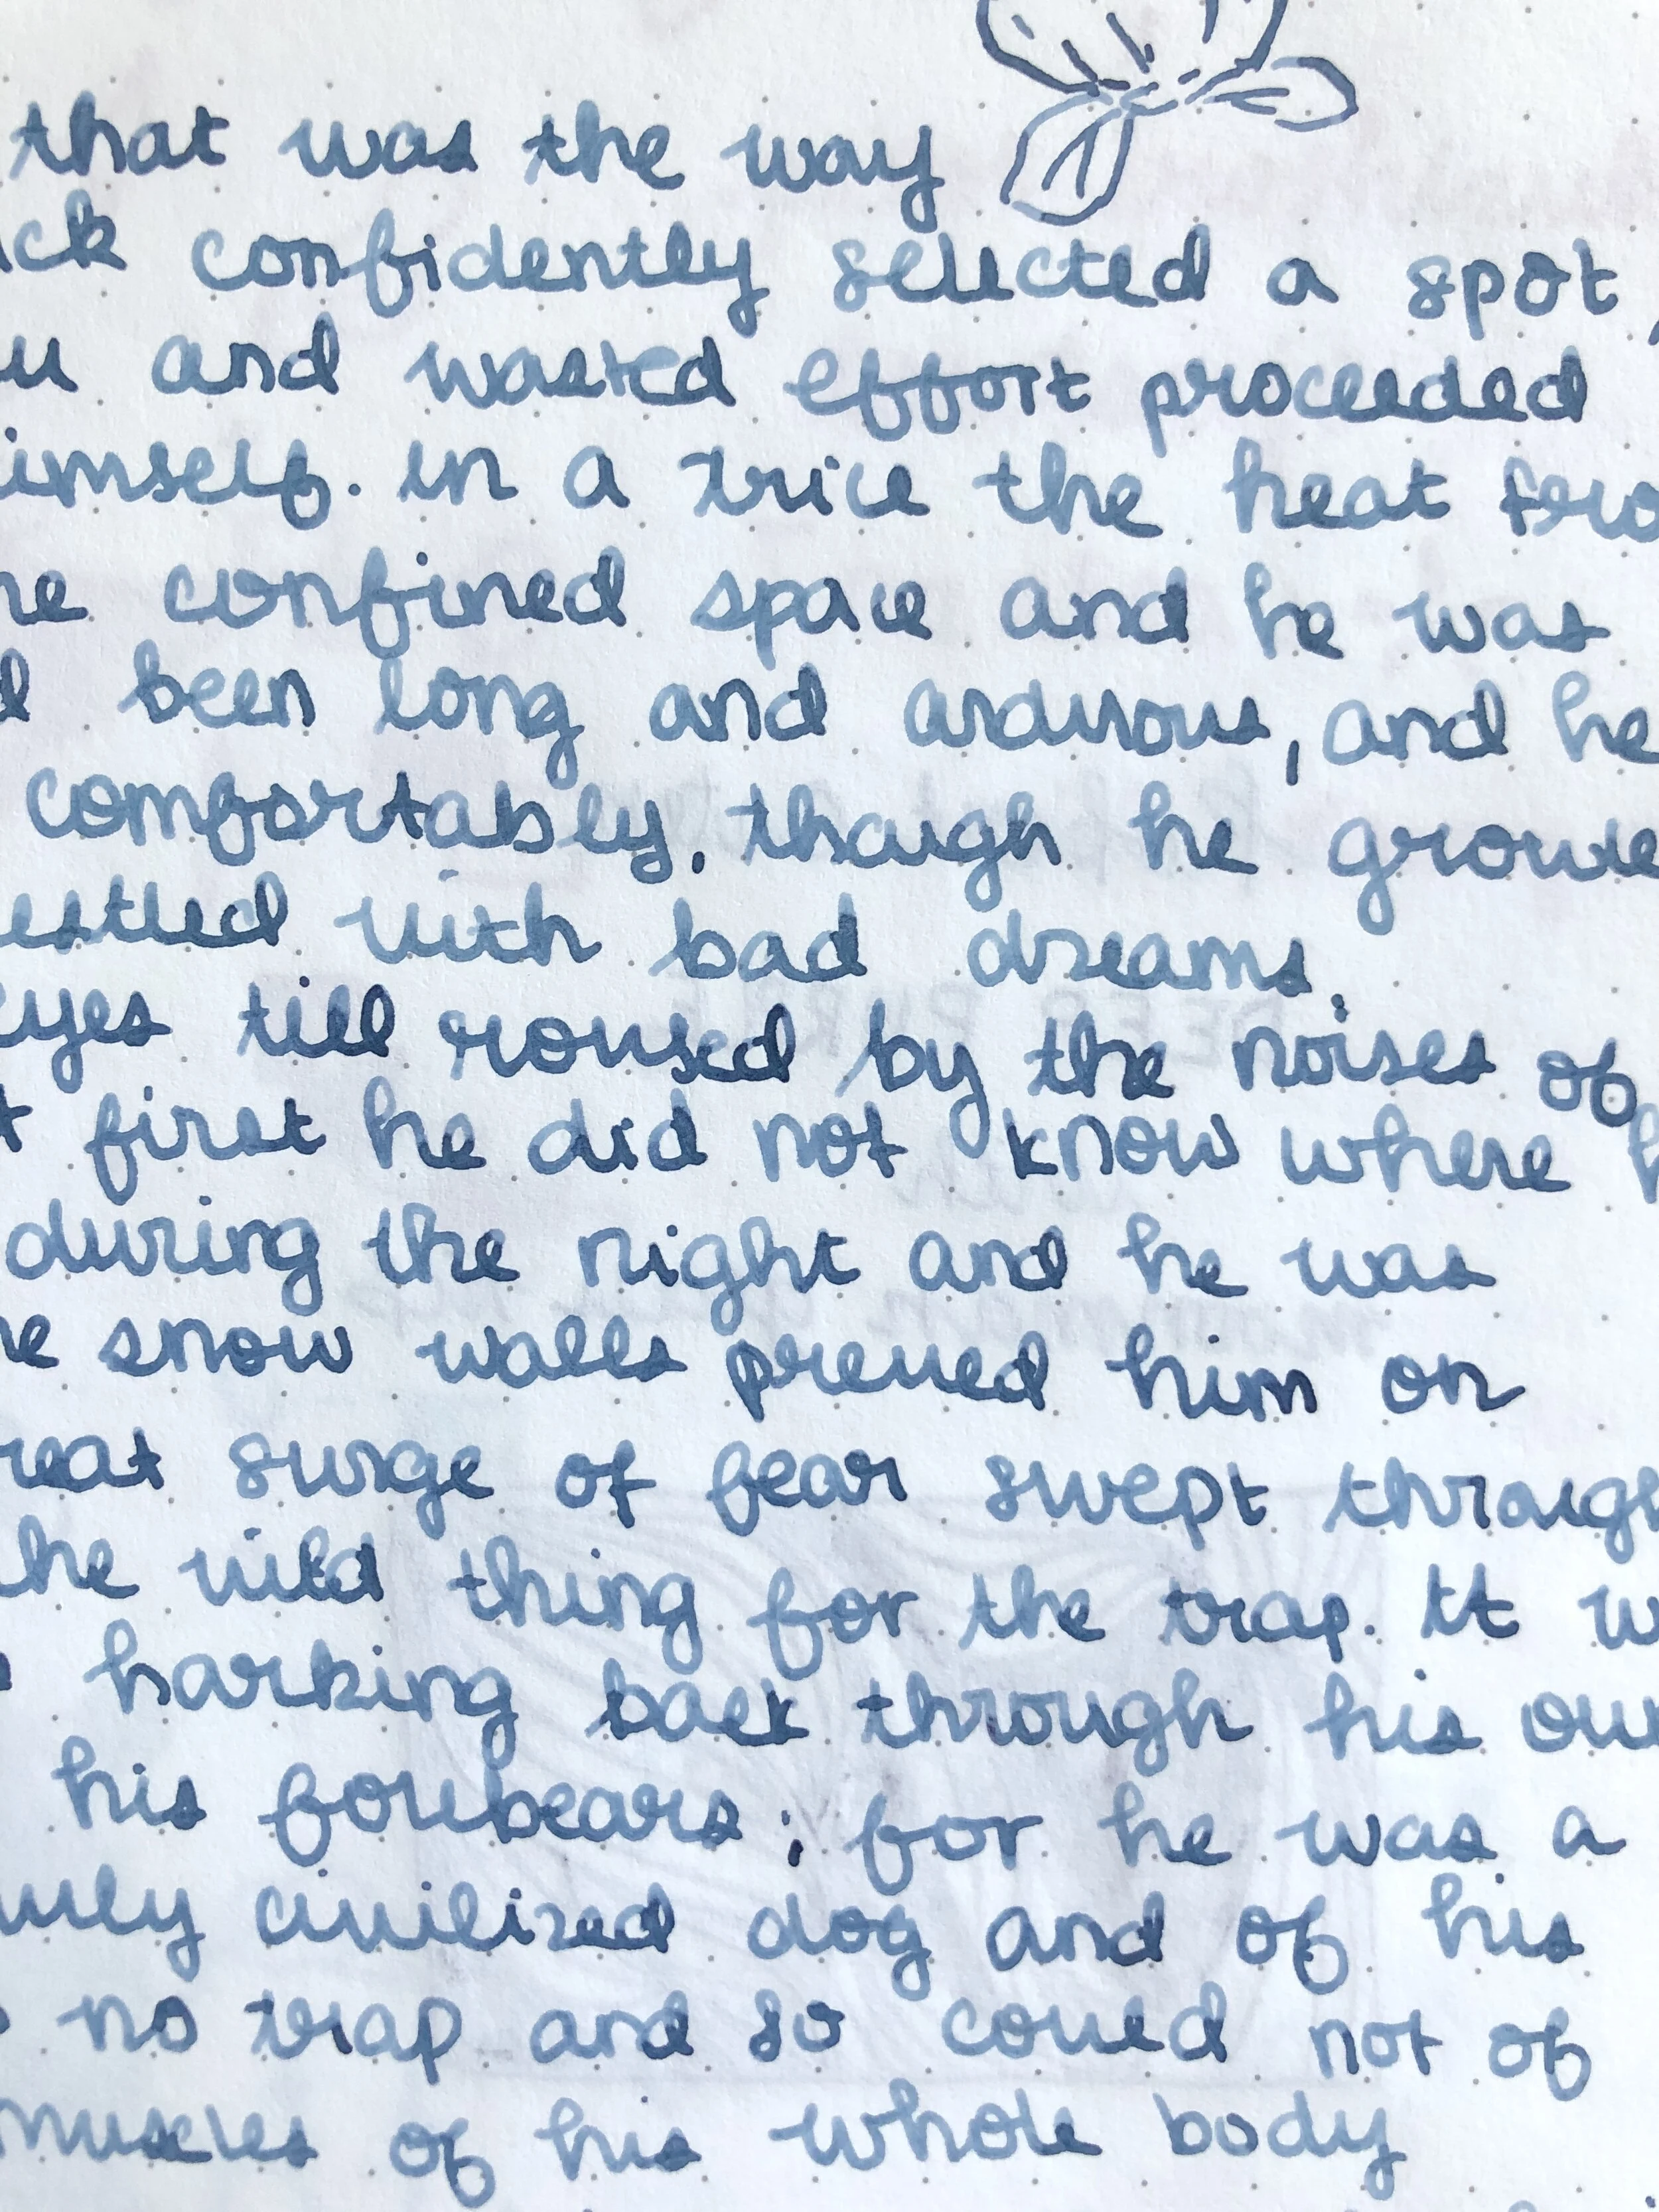 that was the way
ck confidently selected a spot,
u and wasted effort proceeded
imself. in a trice the heat fro
he confined space and he was
d been long and arduous, and he
comfortably, though he growle
estled with bad dreams.
eyes till roused by the noises of
t first he did not know where h
during the night and he was
he snow walls pressed him on
reat surge of fear swept through
he wild thing for the trap. It w
harking back through his own
his forebears; for he was a
uly civilized dog and of his
no trap and so could not of
muscles of his whole body